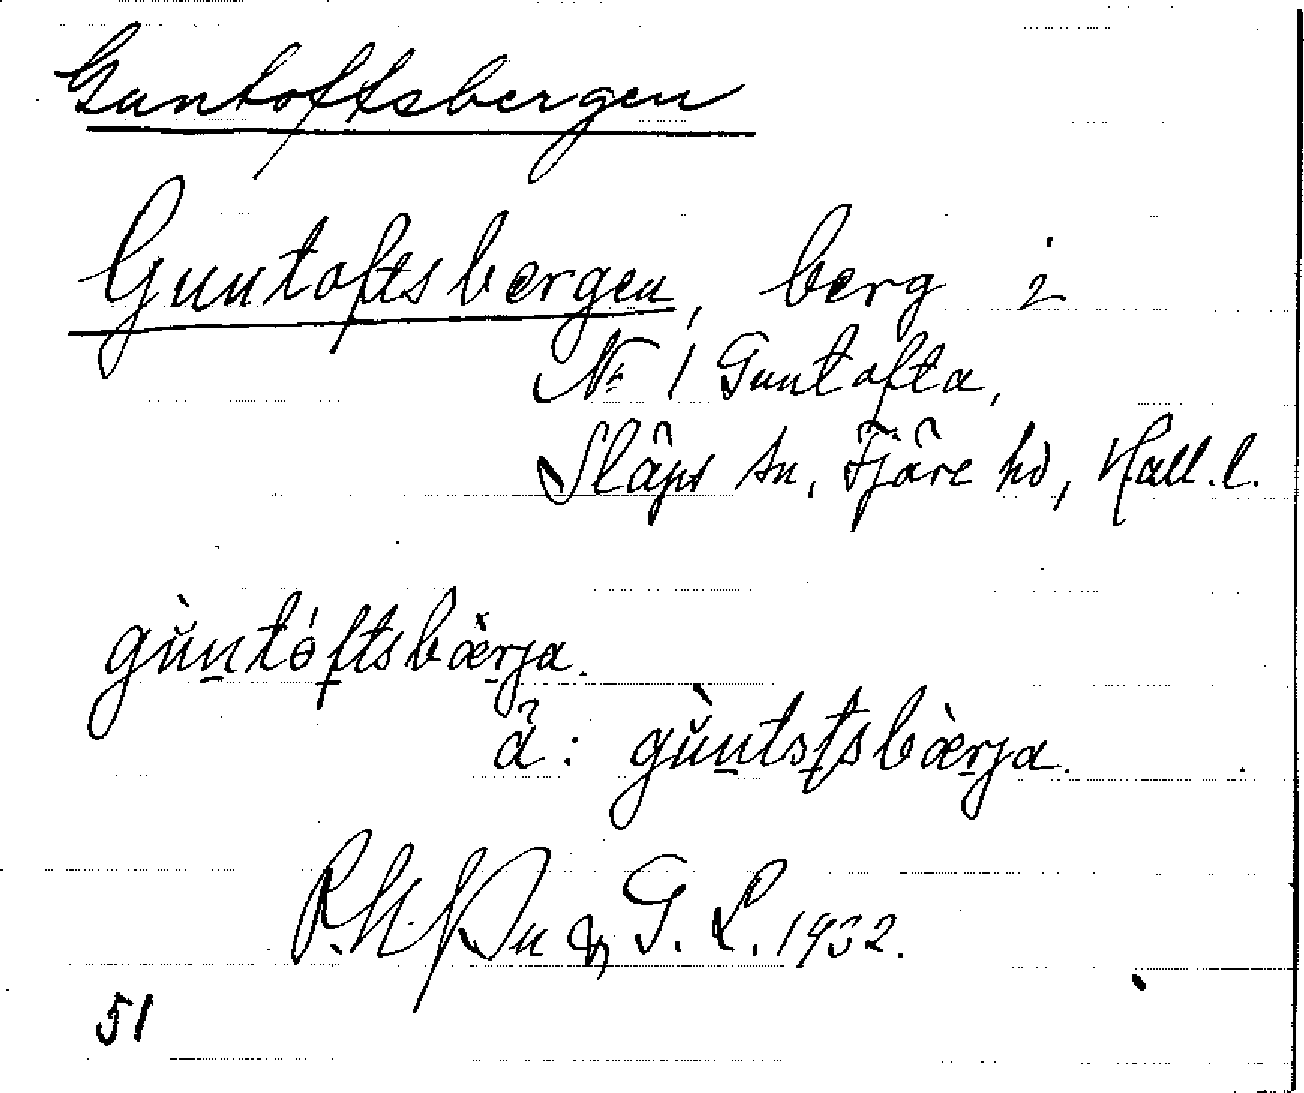 Guntoftsbergen
Guntoftsbergen, berg i
No 1 Guntofta,
Släps sn, Fjäre hd, Hall. l.
gùntóftsbærja.
ä: gùntstsbærja.
& G. L. 1932.
51